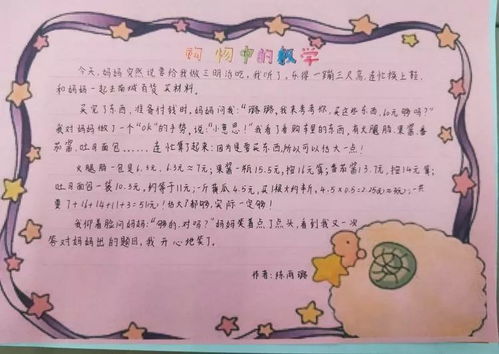 购物中的数学
今天,妈妈突然说要给我做三明治吃,我听了,乐得一蹦三尺高,连忙换上鞋,
和妈妈一起去南城百货买材料。
买完了东西,准备付钱时,妈妈问我:“璐璐,我来考考你,买这些东西,60元够吗?”
我对妈妈做了一个“ok”的手势,说:“小意思!”我看了看购车里的东西,有火腿肠、果酱、番
茄酱、吐司面包……连忙算了起来:因为是要买东西,所以可以估大一点!
火腿肠一包是6.5元,6.5元≈7元;果酱一瓶15.5元,按16元算;番茄酱13.7元,按14元算;
吐司面包一袋10.5元,约等于11元;一斤黄瓜4.5元,买1根大约半斤,4.5×0.5=2.25元≈3元;一共
要7+16+14+11+3=51元!估大了都够,实际一定够!
我仰着脸问妈妈:“够的,对吗?”妈妈笑着点了点头,看到我又一次
答对妈妈出的题目,我开心地笑了。
作者:陈雨璐